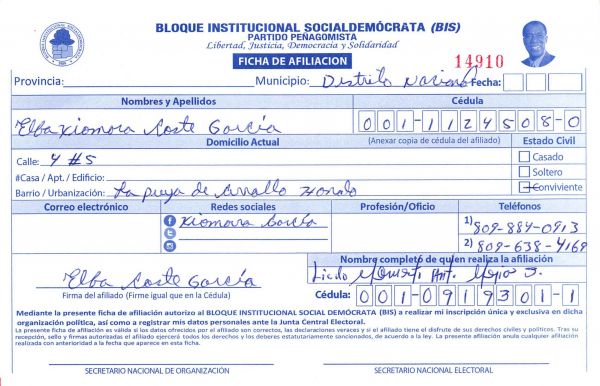 BLOQUE INSTITUCIONAL SOCIALDEMÓCRATA (BIS)
PARTIDO PEÑAGOMISTA
Libertad, Justicia, Democracia y Solidaridad
FICHA DE AFILIACION
14910
Provincia: Municipio: Distrito Nacional Fecha:
Nombres y Apellidos Cédula
Elba Xiomora Coste García 001-1124508-0
Domicilio Actual (Anexar copia de cédula del afiliado) Estado Civil
Calle: 4 #5 Casado
#Casa / Apt. / Edificio: Soltero
Barrio / Urbanización: La puya de Arrollo Hondo Conviviente
Correo electrónico Redes sociales Profesión/Oficio Teléfonos
Xiomora García 1) 809-884-0913
2) 809-638-4169
Nombre completo de quien realiza la afiliación
Elba Coste García Licdo Ant. J.
Firma del afiliado (Firme igual que en la Cédula) Cédula: 001-0919301-1
Mediante la presente ficha de afiliación autorizo al BLOQUE INSTITUCIONAL SOCIAL DEMÓCRATA (BIS) a realizar mi inscripción única y exclusiva en dicha
organización política, así como a registrar mis datos personales ante la Junta Central Electoral.
La presente ficha de afiliación es válida si los datos ofrecidos por el afiliado son correctos, las declaraciones veraces y si el afiliado tiene el disfrute de sus derechos civiles y políticos. Tras su
recepción, sello y firmas autorizadas el afiliado ejercerá todos los derechos y los deberes estatutariamente sancionados, de acuerdo a la ley. La presente afiliación anula cualquier afiliación
realizada con anterioridad a la fecha que aparece en esta ficha.
SECRETARIO NACIONAL DE ORGANIZACIÓN SECRETARIO NACIONAL ELECTORAL